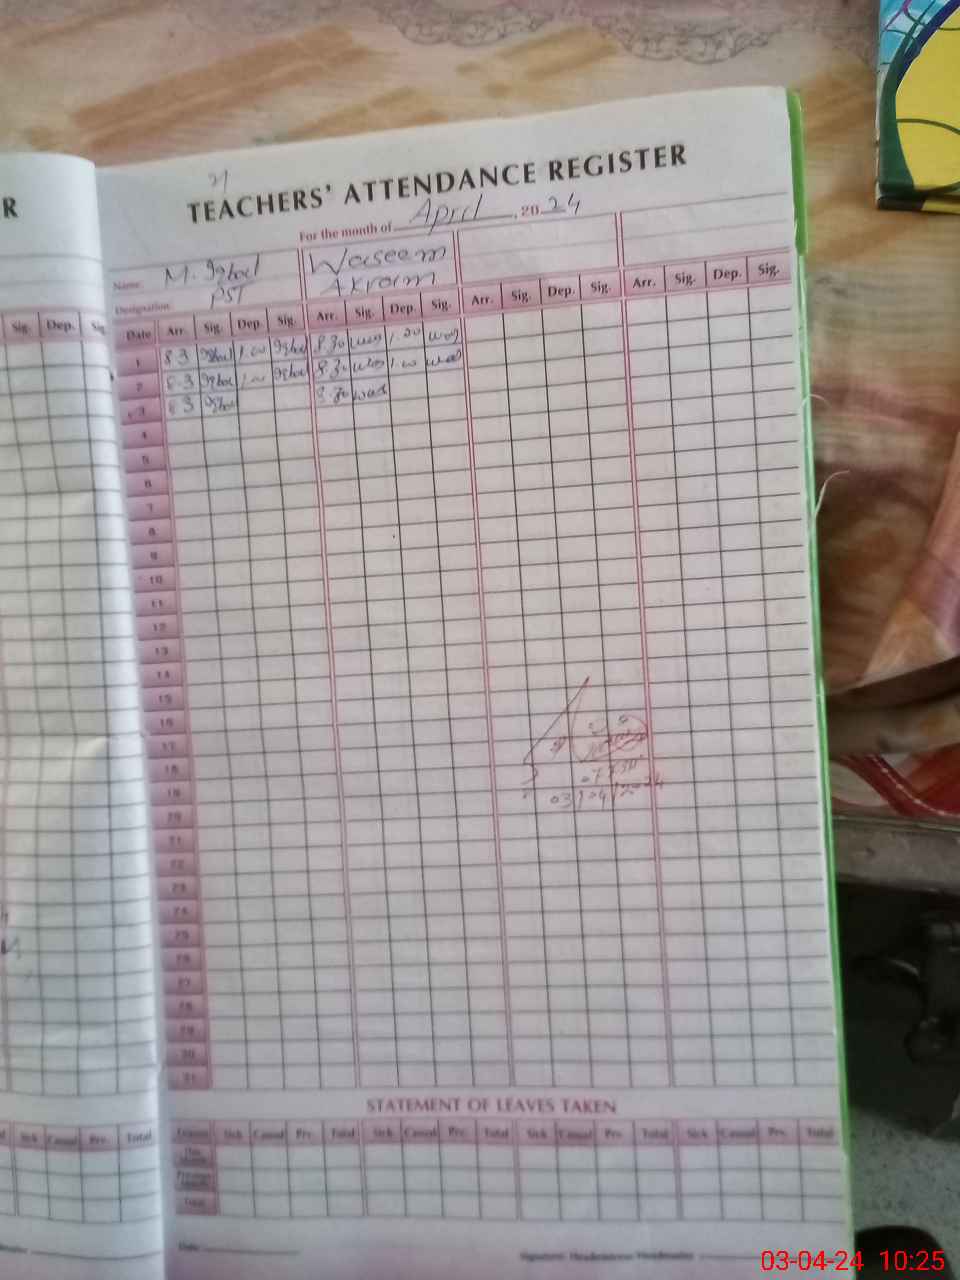 R
TEACHERS' ATTENDANCE REGISTER
For the month of April, 2024
Name M. Iqbal Waseem
Designation PST Akram
Sig. Dep. Sig.
Date Arr. Sig. Dep. Sig. Arr. Sig. Dep. Sig. Arr. Sig. Dep. Sig. Arr. Sig. Dep. Sig.
1 8.3 Iqbal 1.00 Iqbal 8.30 was 1.30 was
2 8.3 Iqbal 1.00 Iqbal 8.30 was 1.00 was
3 8.3 Iqbal 8.30 was
4
5
6
7
8
9
10
11
12
13
14
15
16
17
18
19
20
21
22
23
24
25
26
27
28
29
30
31
03/04/2024
STATEMENT OF LEAVES TAKEN
Sick Casual Prv. Total Leaves Sick Casual Prv. Total Sick Casual Prv. Total Sick Casual Prv. Total Sick Casual Prv. Total
Total
Date
Signature Headmistress/Headmaster
03-04-24 10:25